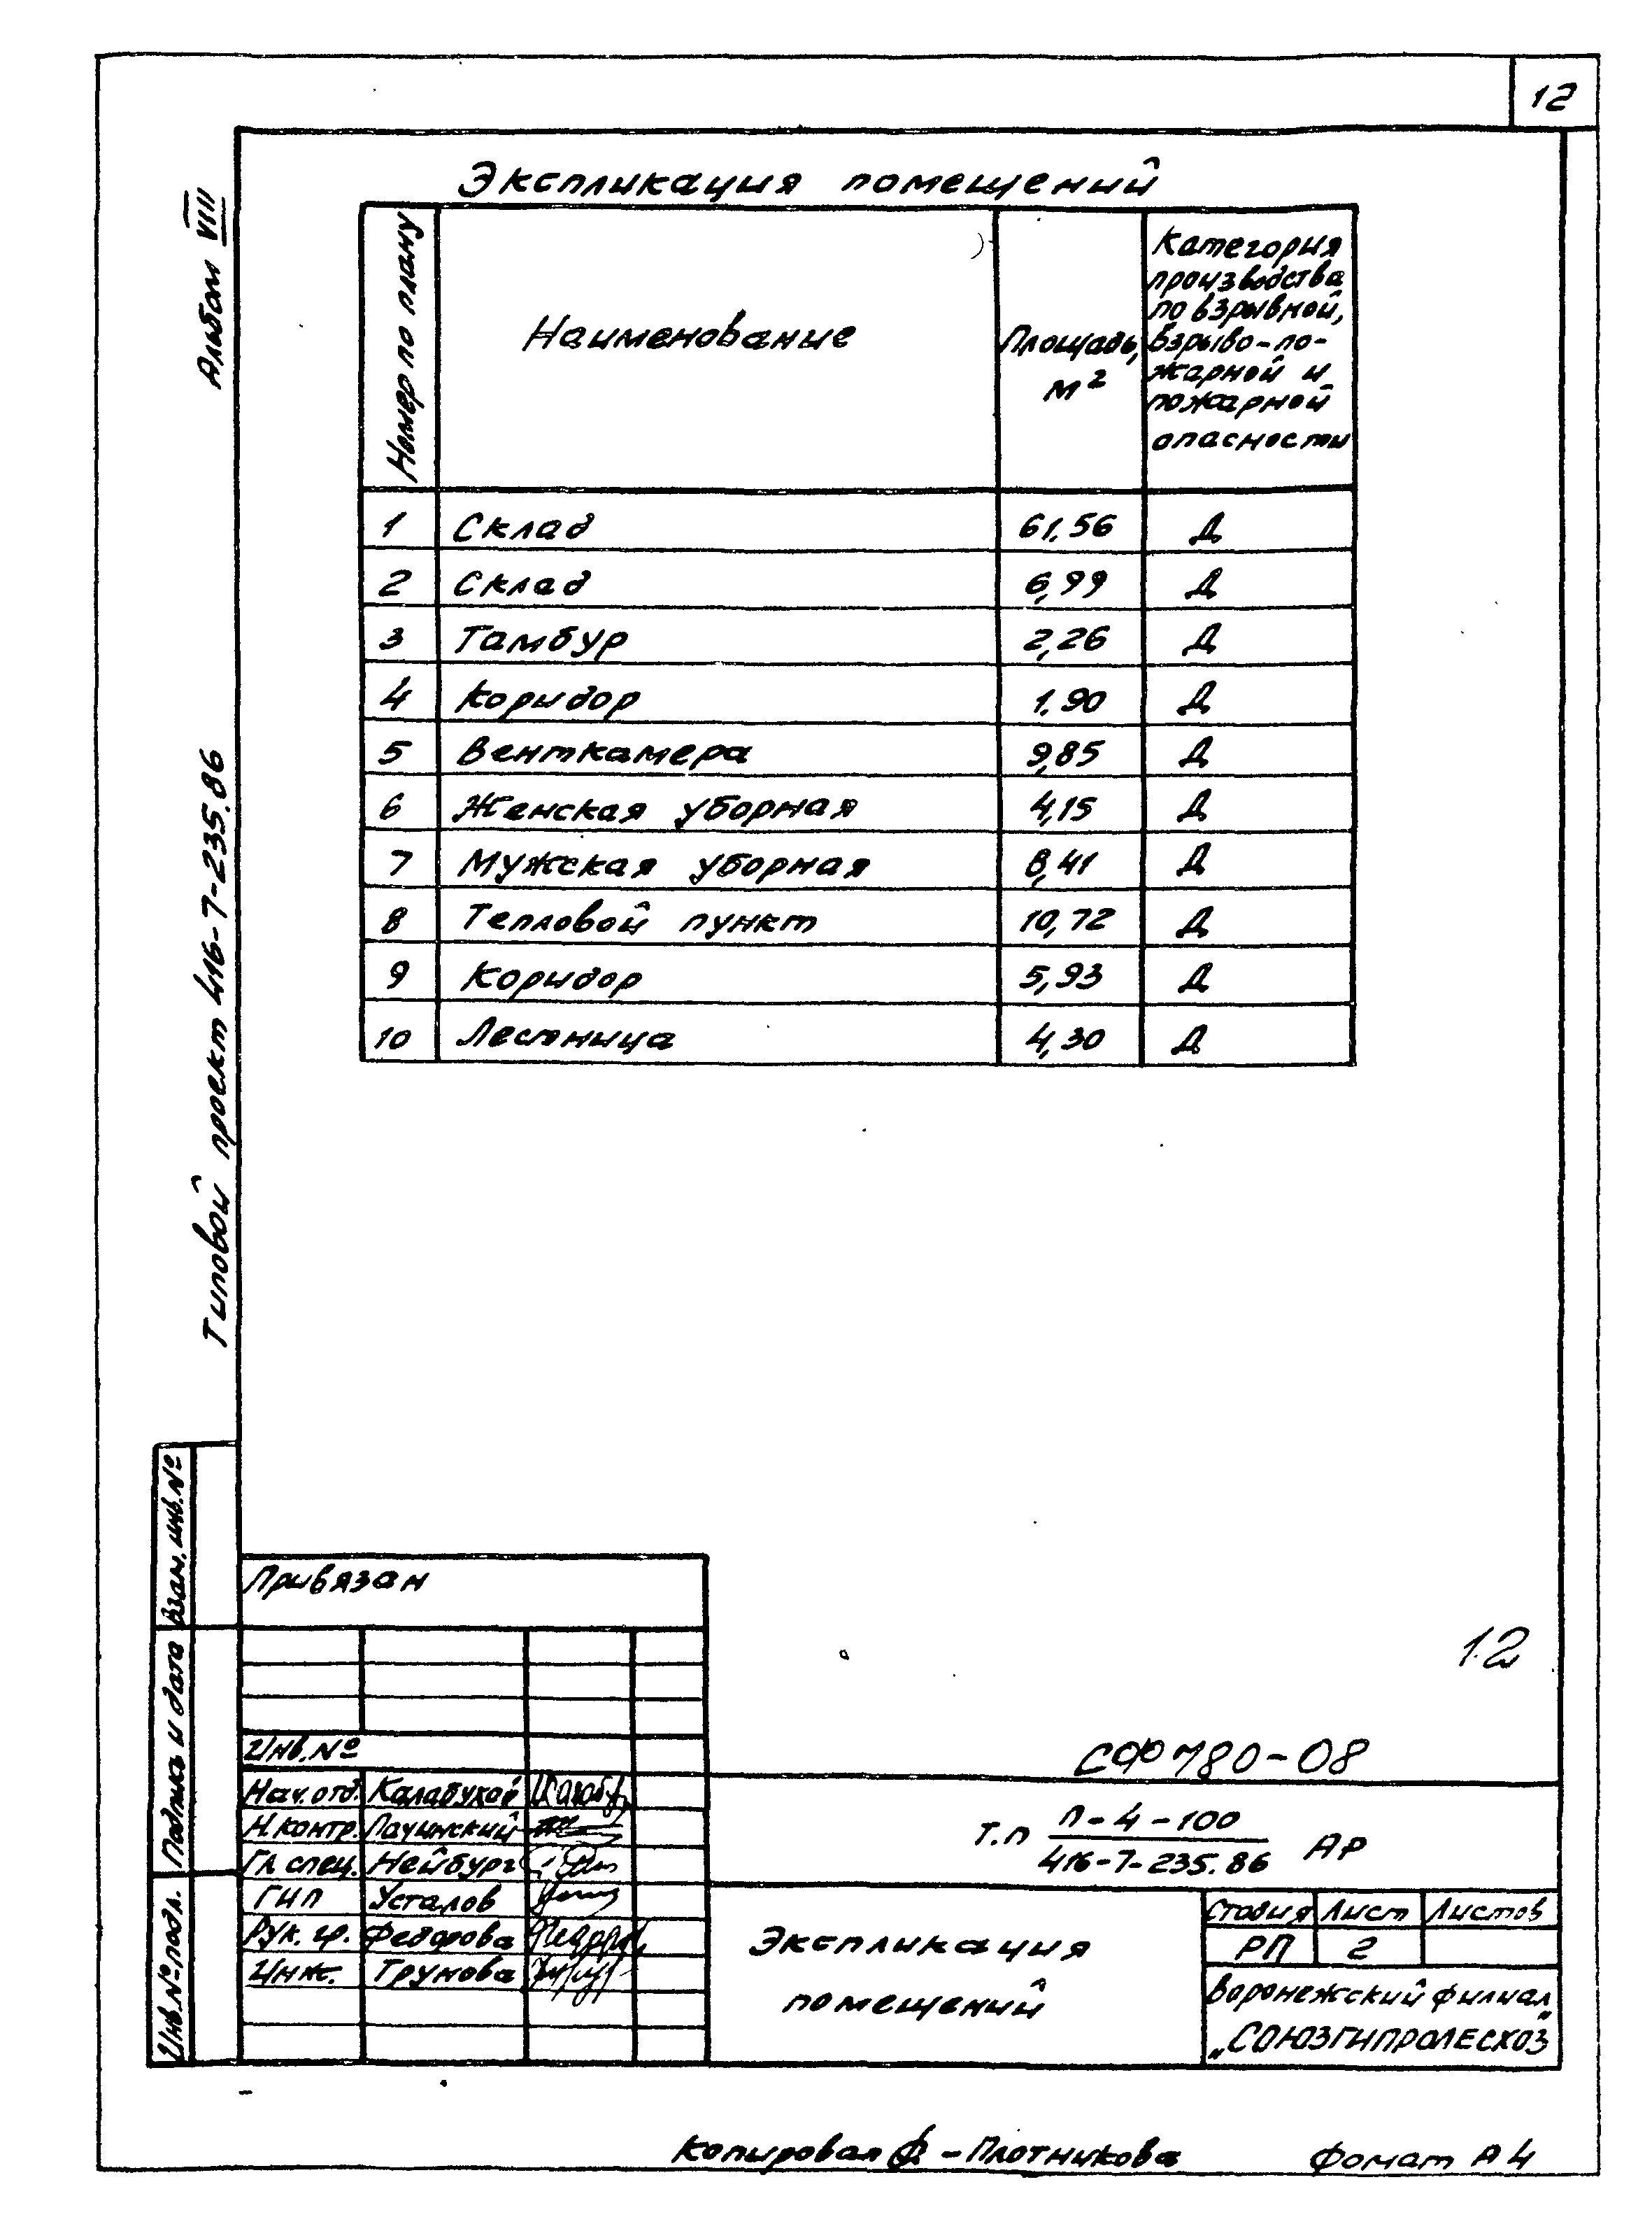 12
Альбом VIII
Типовой проект 416-7-235.86
Экспликация помещений
Номер по плану
Наименование
Площадь,
м²
Категория
производства
по взрывной,
взрыво-по-
жарной и
пожарной
опасности
1 Склад 61,56 Д
2 Склад 6,99 Д
3 Тамбур 2,26 Д
4 Коридор 1,90 Д
5 Венткамера 9,85 Д
6 Женская уборная 4,15 Д
7 Мужская уборная 8,41 Д
8 Тепловой пункт 10,72 Д
9 Коридор 5,93 Д
10 Лестница 4,30 Д
Взам. инв. №
Подпись и дата
Инв. № подл.
Привязан
Инв. №
12
СФ 780-08
Нач. отд. Калабухов
Н. контр.
Гл. спец. Нейбург
ГИП Усталов
Рук. гр. Федорова
Инж. Трунова
Т.п П-4-100
416-7-235.86 АР
Экспликация
помещений
Стадия Лист Листов
РП 2
Воронежский филиал
„СОЮЗГИПРОЛЕСХОЗ"
Копировал Ф.-Плотникова
Фомат А4